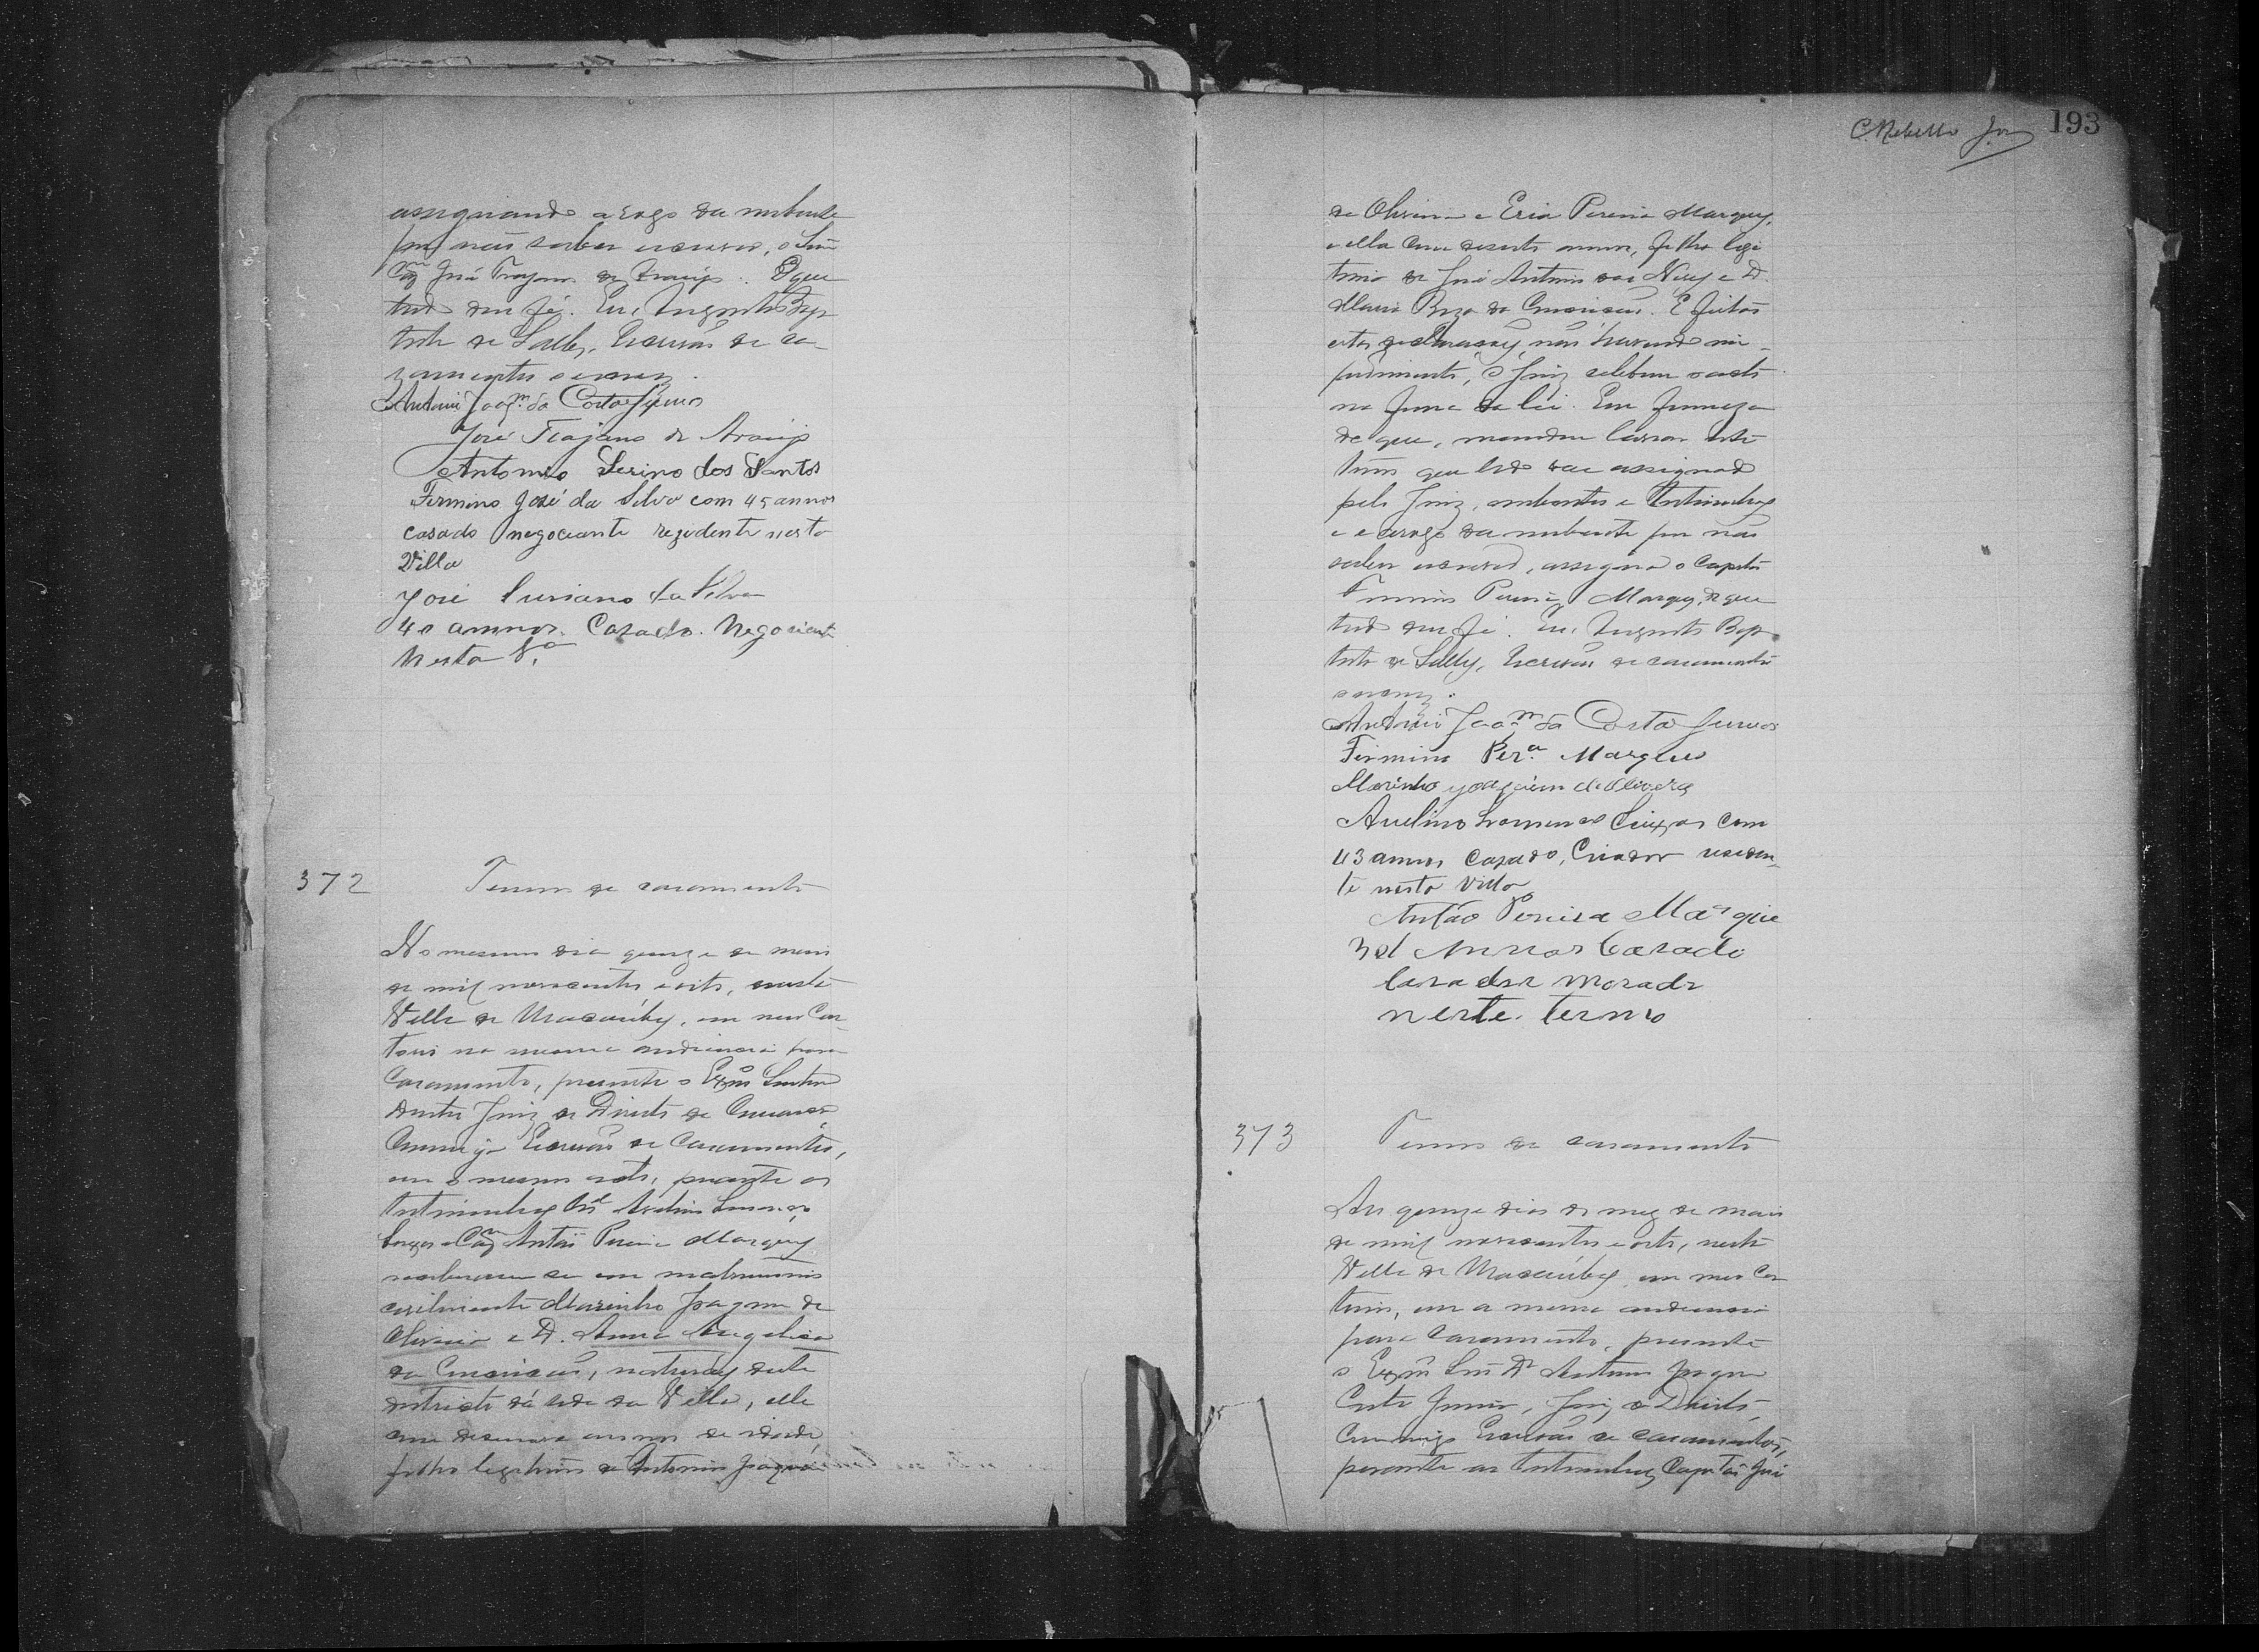 assignando a rogo da nubente
por não saber escrever, o Snr
Capm José Trajano de Araujo. Do que
tudo dou fé. Eu, Augusto Bap
tista de Salles, Escrivão de ca-
zamentos escrevi.
Antonio Joaqm. da Costa Junior
José Trajano de Araujo
Antonio Serino dos Santos
Firmino José da Silva com 45 annos
casado negociante rezidente nesta
Villa
José Suriano da Silva
40 annos. Cazado. Negociante
Nesta Va.
372 Termo de casamento
No mesmo dia quinze de maio
de mil novecentos e oito, nesta
Villa de Macaúbas, em meu Car-
torio na mesma audiencia para
Casamento, presente o Exmo Senhor
Doutor Juiz de Direito da Comarca
Commigo Escrivão de Casamentos,
em o mesmo acto, perante as
testimunhas Avelino
e Capm Antão Pereira Marques
receberam se em matrimonio
civilmente Marinho Joaqm de
Oliveira e D. Anna Angelica
da Conceicão, naturaes deste
districto da sede da Villa, elle
com desenove annos de idade,
filho legitimo de Antonio Joaquim
C. Rebello Jor 193
de Oliveira e Pereira Marques,
e ella com annos, filha legi
tima de José Antonio das Neves e D.
Maria Roza da Conceicão. E feitas
estas não havendo im-
pedimento, o Juiz celebrou o acto
na forma da lei. Em firmeza
do que, mandou lavrar este
termo que lido vae assignado
pelo Juiz, nubentes e testimunhas
e a rogo da nubente por não
saber escrever, assigna o Capitão
Firmino Pereira Marques, do que
tudo dou fé. Eu, Augusto Bap
tista de Salles, Escrivão de casamentos
escrevi.
Antonio Joaqm. da Costa Junior
Firmino Pera. Marques
Marinho Joaquim de Oliveira
Avelino com
43 annos Cazado, Criador residen-
te nesta Villa
Antão Pereira Marque
Annos Cazado
lavador morador
neste termo
373 Termo de casamento
Aos quinze dias do mez de maio
de mil novecentos e oito, nesta
Villa de Macaúbas em meu Car
torio, em a mesma audiencia
para Casamento, presente
o Exmo Snr Dr Antonio Joaqm
Costa Junior, Juiz de Direito,
Commigo Escrivão de casamentos,
perante as testimunhas Capitão José